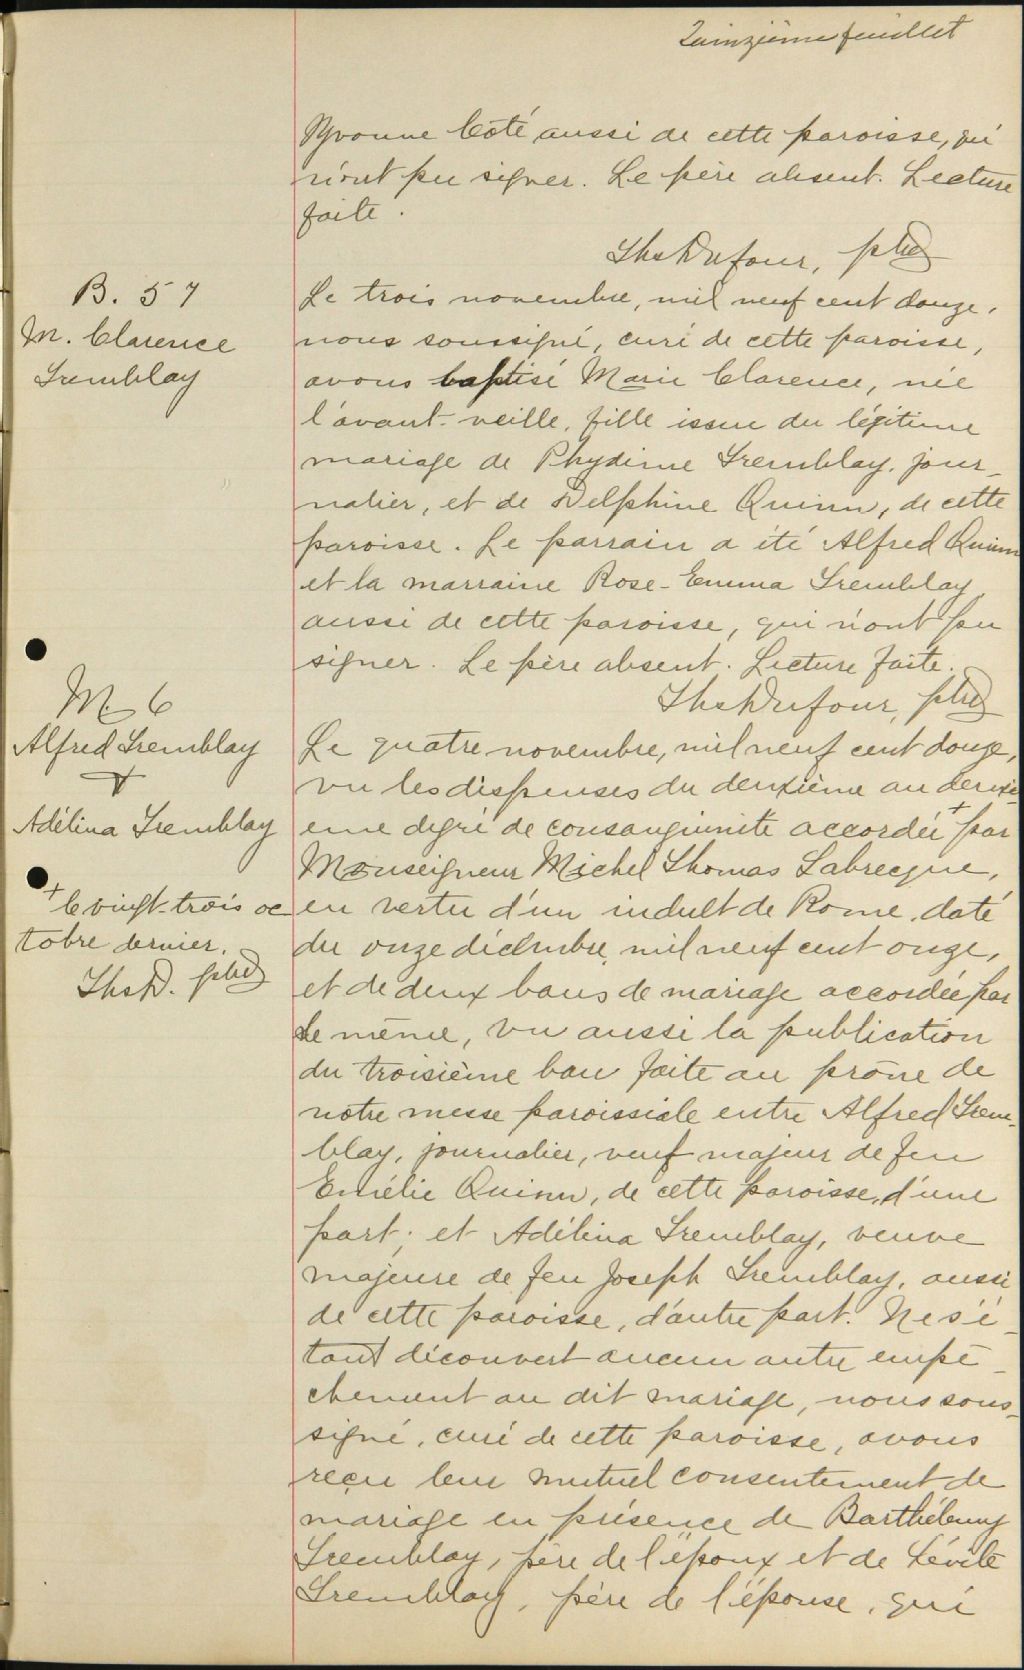 Quinzième feuillet
Yvonne Côté aussi de cette paroisse, qui
n'ont pu signer. Le père absent. Lecture
faite.
Ths Dufour, ptre
B. 57
M. Clarence
Tremblay
Le trois novembre, mil neuf cent douze,
nous soussigné, curé de cette paroisse,
avons baptisé Marie Clarence, née
l'avant-veille, fille issue du légitime
mariage de Phydime Tremblay, jour-
nalier, et de Delphine Quinn, de cette
paroisse. Le parrain a été Alfred Quinn
et la marraine Rose-Emma Tremblay,
aussi de cette paroisse, qui n'ont pu
signer. Le père absent. Lecture faite.
Ths Dufour, ptre
M. 6
Alfred Tremblay
&
Adélina Tremblay
+ le vingt-trois oc
tobre dernier.
Ths D. ptre
Le quatre novembre, mil neuf cent douze,
vu les dispenses du deuxième au deuxi-
ème degré de consanguinité accordée + par
Monseigneur Michel Thomas Labrecque,
en vertu d'un indult de Rome, daté
du onze décembre, mil neuf cent onze,
et de deux bans de mariage accordée par
le même, vu aussi la publication
du troisième ban faite au prône de
notre messe paroissiale entre Alfred Trem-
blay, journalier, veuf majeur de feu
Emélie Quinn, de cette paroisse, d'une
part; et Adélina Tremblay, veuve
majeure de feu Joseph Tremblay, aussi
de cette paroisse, d'autre part. Ne s'é-
tant découvert aucun autre empê-
chement au dit mariage, nous sous-
signé, curé de cette paroisse, avons
reçu leur mutuel consentement de
mariage en présence de Barthélemy
Tremblay, père de l'époux et de Lévite
Tremblay, père de l'épouse, qui